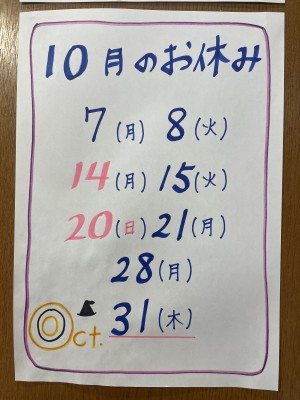 10月のお休み
7(月) 8(火)
14(月) 15(火)
20(日) 21(月)
28(月)
31(木)
Oct.